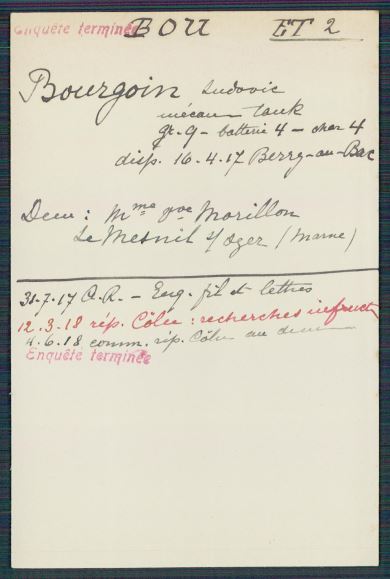 Enquête terminée BOU ET 2
Bourgoin Ludovic
mécan tank
gr. 9 - batterie 4 - char 4
disp. 16.4.17 Berry-au-Bac
Dem : Mme Vve Morillon
Le Mesnil s/ Oger (Marne)
31.7.17 O.R. - Enq. fil et lettres
12.3.18 rép. Cölln : recherches infruct
4.6.18 comm. rép. Cölln au dem
Enquête terminée